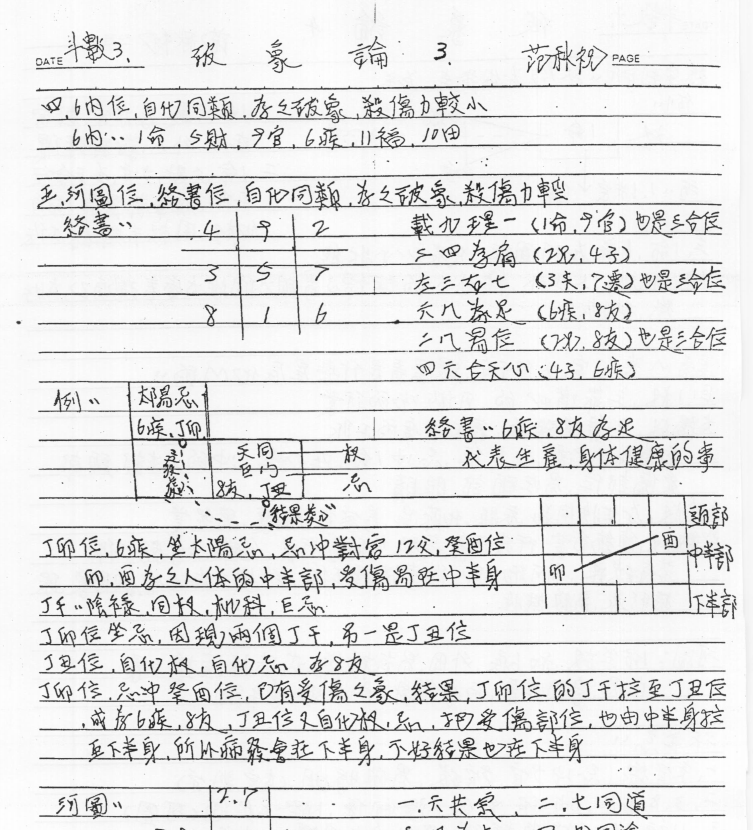 DATE 斗數3. 破象論 3. 范秋祝 PAGE
四,6內位,自化同類,為之破象,殺傷力較小
6內:1命,5財,9官,6疾,11福,10田
五,河圖位,絡書位,自化同類,為之破象,殺傷力輕些
絡書:
4 9 2
3 5 7
8 1 6
載九理一 (1命,9官) 也是三合位
二四為肩 (2兄,4子)
左三右七 (3夫,7遷) 也是三合位
六八為足 (6疾,8友)
二八易位 (2兄,8友) 也是三合位
四六合天心 (4子,6疾)
例:
太陽忌
6疾,丁卯
天同—權
巨門—忌
8友,丁丑
結果類
絡書:6疾,8友為足
代表生產,身体健康的事
卯 酉
頭部
中半部
下半部
丁卯位,6疾,坐太陽忌,忌沖對宮12父,癸酉位
卯,酉為之人体的中半部,受傷易在中半身
丁干:陰祿,同权,机科,巨忌
丁卯位坐忌,因現兩個丁干,另一是丁丑位
丁丑位,自化权,自化忌,為8友
丁卯位,忌沖癸酉位,已有受傷之象,結果,丁卯位的丁干拉至丁丑位
,或為6疾,8友,丁丑位又自化权,忌,把受傷部位,也由中半身拉
至下半身,所以病發會在下半身,不好結果也在下半身
河圖:
2.7
一.六共宗,二.七同道